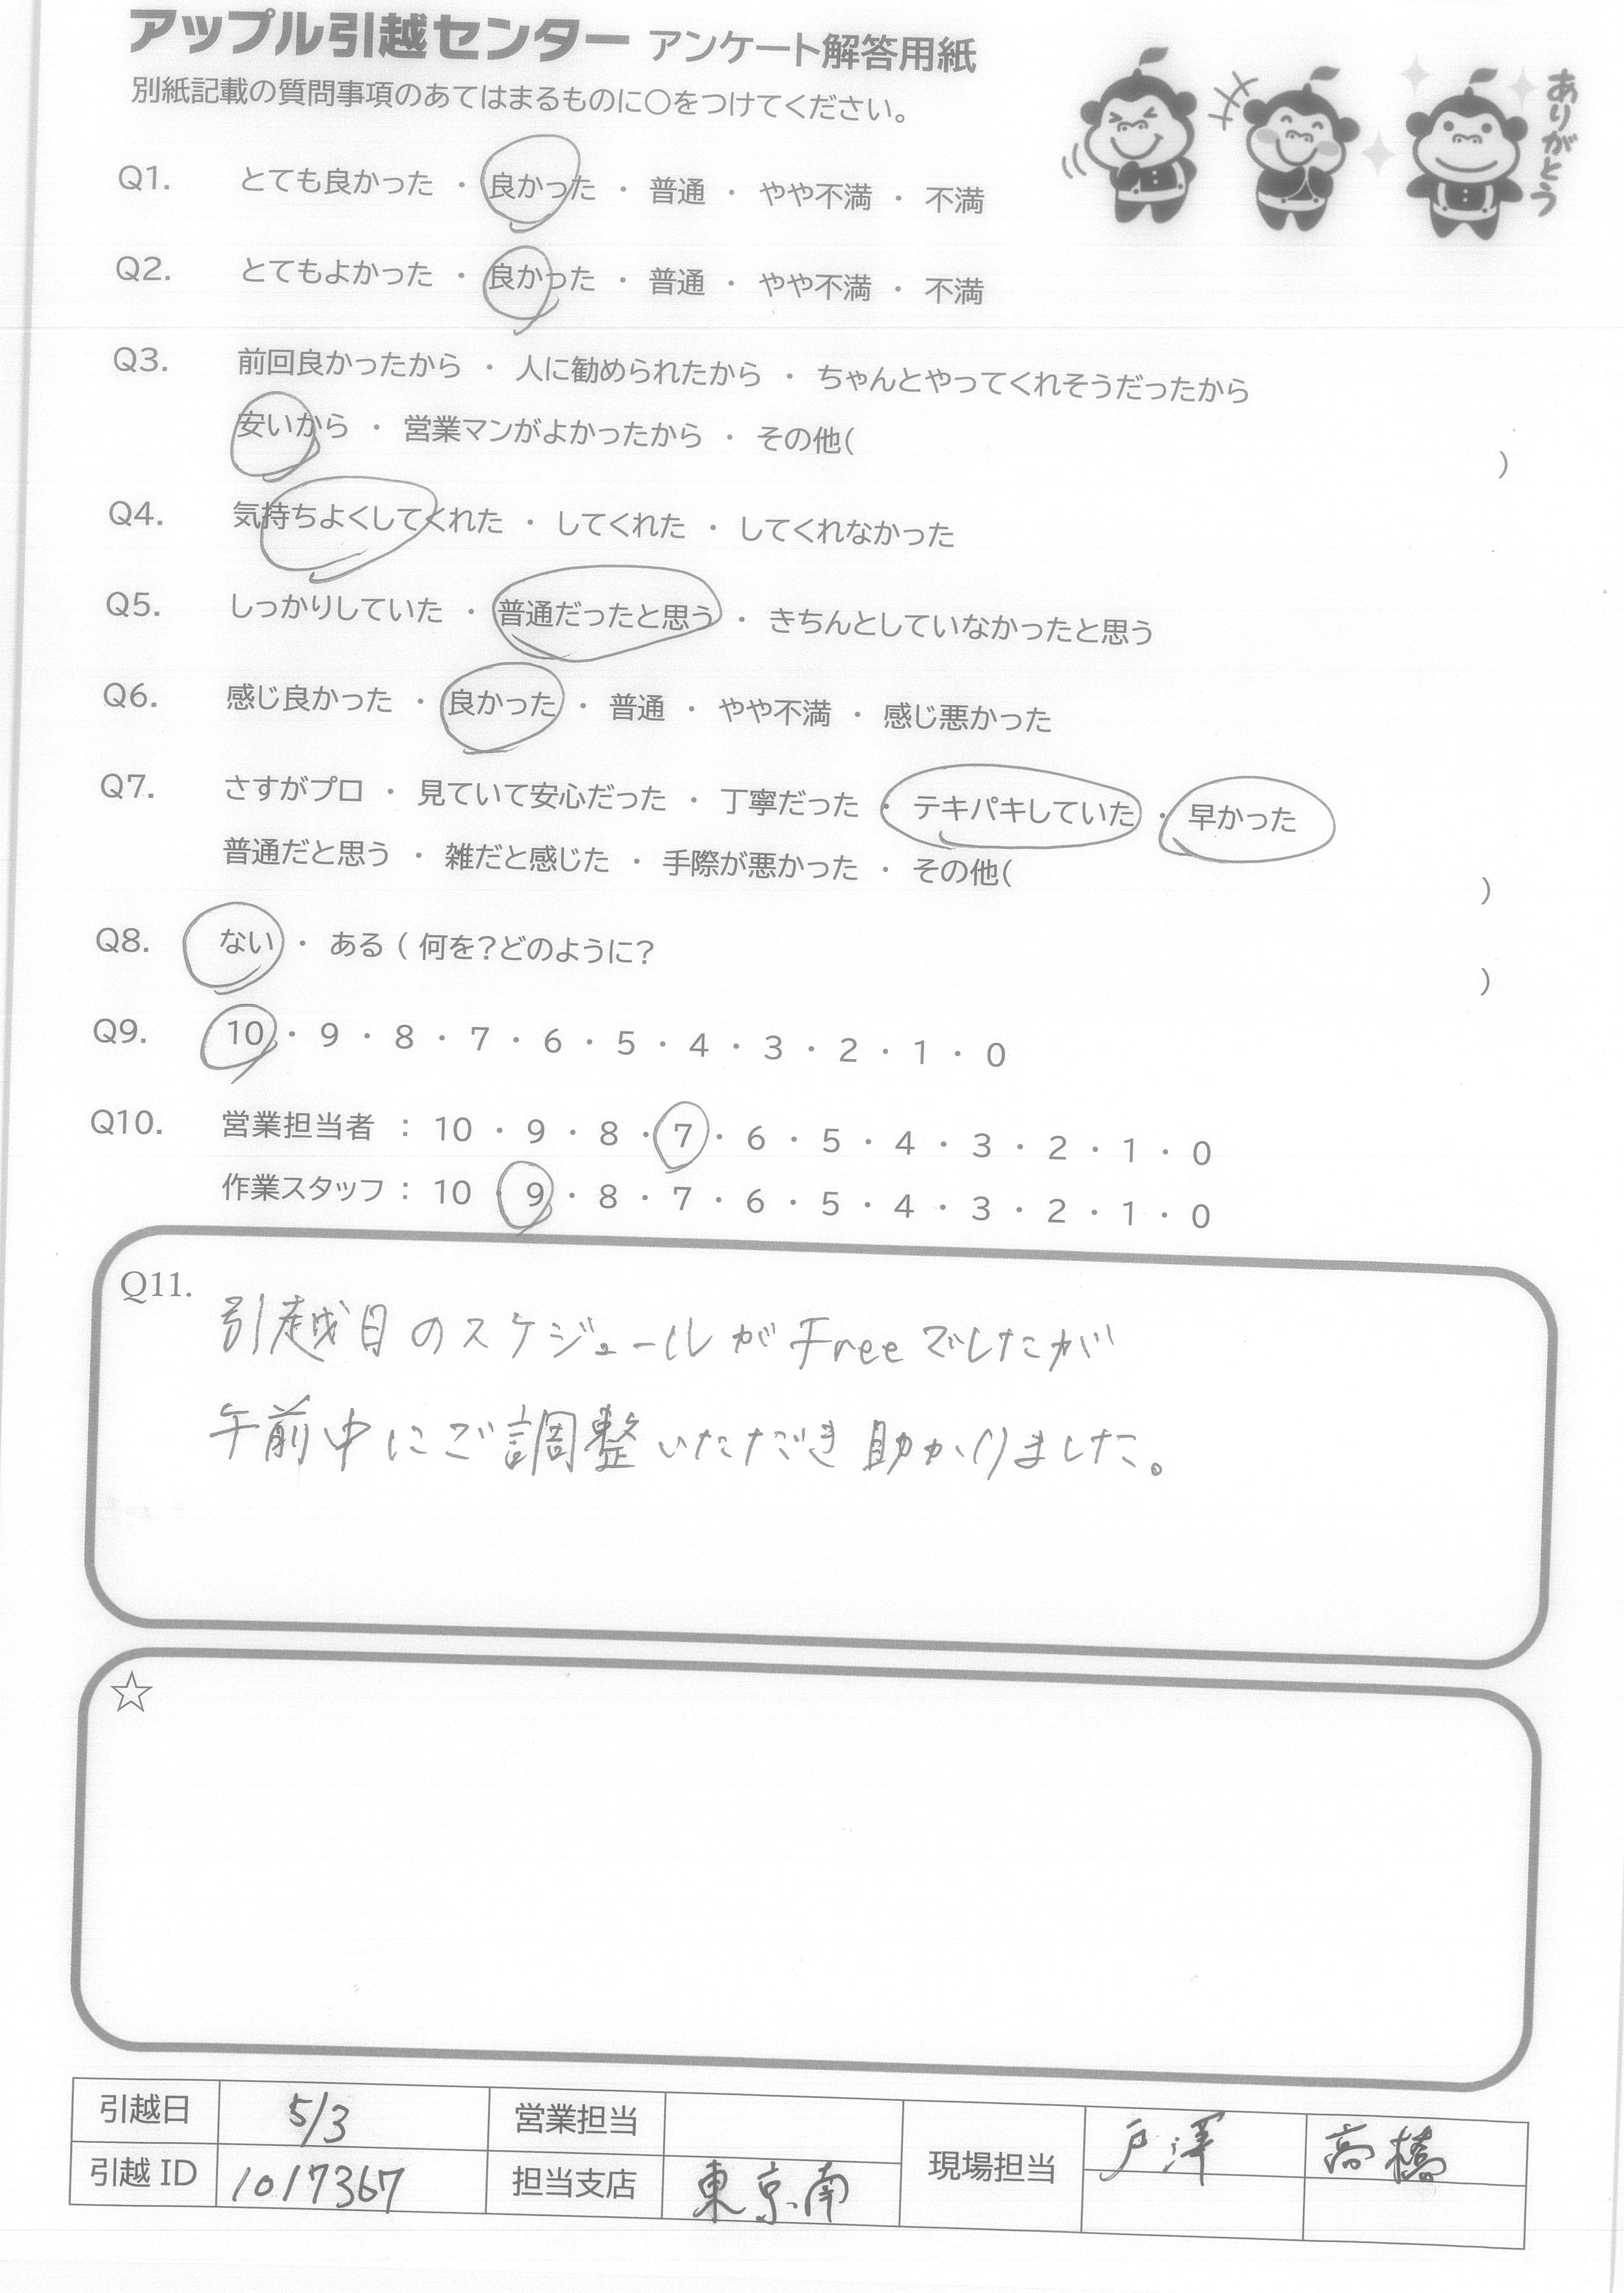 アップル引越センター アンケート解答用紙
別紙記載の質問事項のあてはまるものに○をつけてください。
ありがとう
Q1. とても良かった ・ 良かった ・ 普通 ・ やや不満 ・ 不満
Q2. とてもよかった ・ 良かった ・ 普通 ・ やや不満 ・ 不満
Q3. 前回良かったから ・ 人に勧められたから ・ ちゃんとやってくれそうだったから
安いから ・ 営業マンがよかったから ・ その他( )
Q4. 気持ちよくしてくれた ・ してくれた ・ してくれなかった
Q5. しっかりしていた ・ 普通だったと思う ・ きちんとしていなかったと思う
Q6. 感じ良かった ・ 良かった ・ 普通 ・ やや不満 ・ 感じ悪かった
Q7. さすがプロ ・ 見ていて安心だった ・ 丁寧だった ・ テキパキしていた ・ 早かった
普通だと思う ・ 雑だと感じた ・ 手際が悪かった ・ その他( )
Q8. ない ・ ある ( 何を?どのように? )
Q9. 10 ・ 9 ・ 8 ・ 7 ・ 6 ・ 5 ・ 4 ・ 3 ・ 2 ・ 1 ・ 0
Q10. 営業担当者 : 10 ・ 9 ・ 8 ・ 7 ・ 6 ・ 5 ・ 4 ・ 3 ・ 2 ・ 1 ・ 0
作業スタッフ : 10 ・ 9 ・ 8 ・ 7 ・ 6 ・ 5 ・ 4 ・ 3 ・ 2 ・ 1 ・ 0
Q11. 引越日のスケジュールがFreeでしたが
午前中にご調整いただき助かりました。
☆
引越日 5/3 営業担当 現場担当 戸澤 高橋
引越 ID 1017367 担当支店 東京南